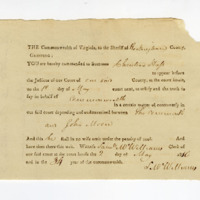 THE Commonwealth of Virginia, to the Sheriff of Rockingham County,
GREETING:
YOU are hereby commanded to summon
to appear before
the Justices of our Court of our said County, in the court house,
on the day of May next court, to testify and the truth to
say in behalf of the Commonwealth
in a certain matter of controversy in
our said court depending and undetermined between the Commonwealth
and John Moore
And this he shall in no wise omit under the penalty of each.
And have then there this writ. Witness McWilliams Clerk of
our said court at the court house the day of May
and in the year of the commonwealth.
McWilliams